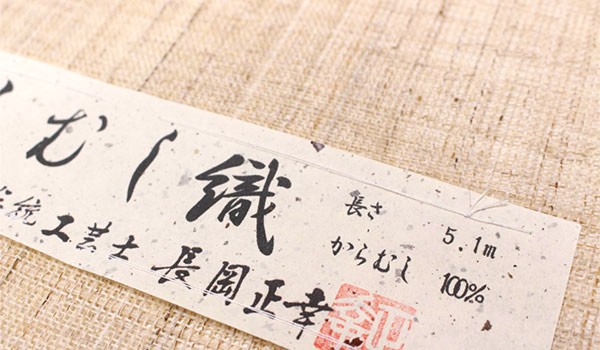 むし織
統工芸士 長岡正幸
長さ 5.1m
からむし 100%